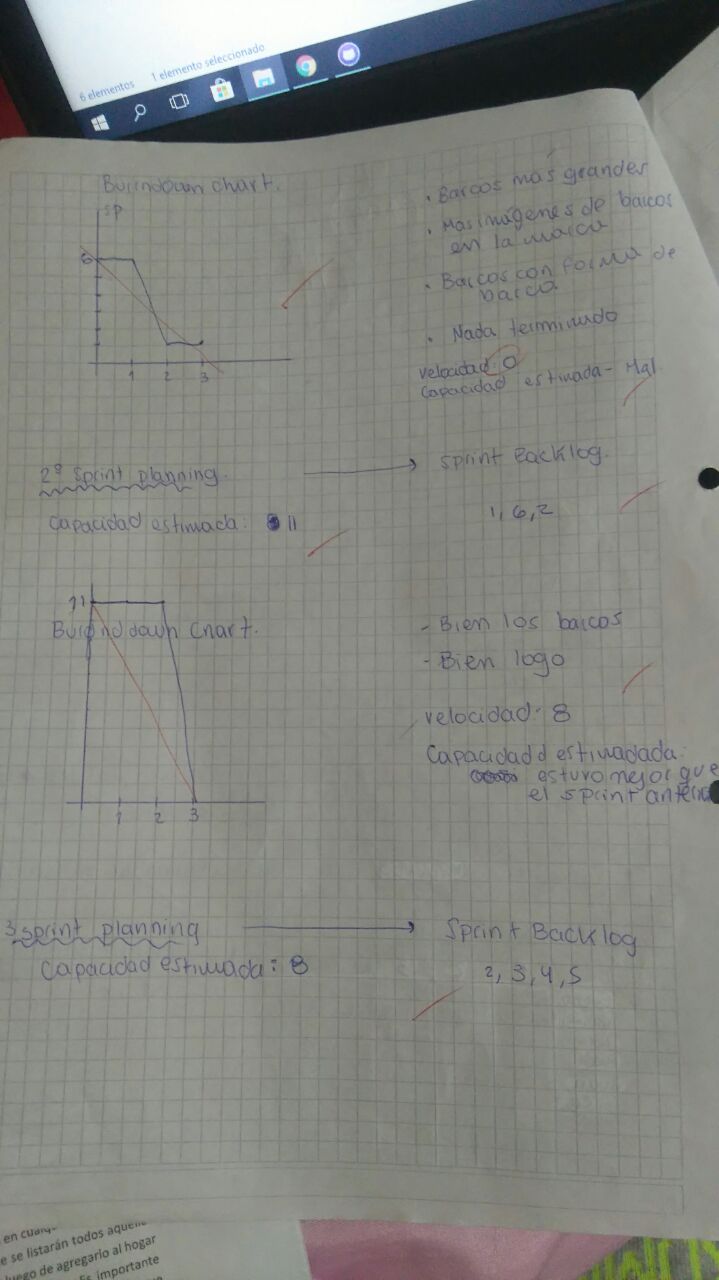 6 elementos 1 elemento seleccionado
Burndown chart.
SP
6
1 2 3
• Barcos más grandes
• Mas imágenes de barcos
en la marca
• Barcos con forma de
barco
• Nada terminado
velocidad: 0
capacidad estimada - Mal.
2º Sprint planning.
Sprint Backlog.
capacidad estimada: 11
1, 6, 2
11
Burnddown Chart.
1 2 3
- Bien los barcos
- Bien logo
velocidad - 8
Capacidadd estimadada:
estuvo mejor que
el sprint anterio
3 sprint planning
Sprint Backlog
Capacidad estimada: 8
2, 3, 4, 5
en cualq
e se listarán todos aquell
luego de agregarlo al hogar
Es importante